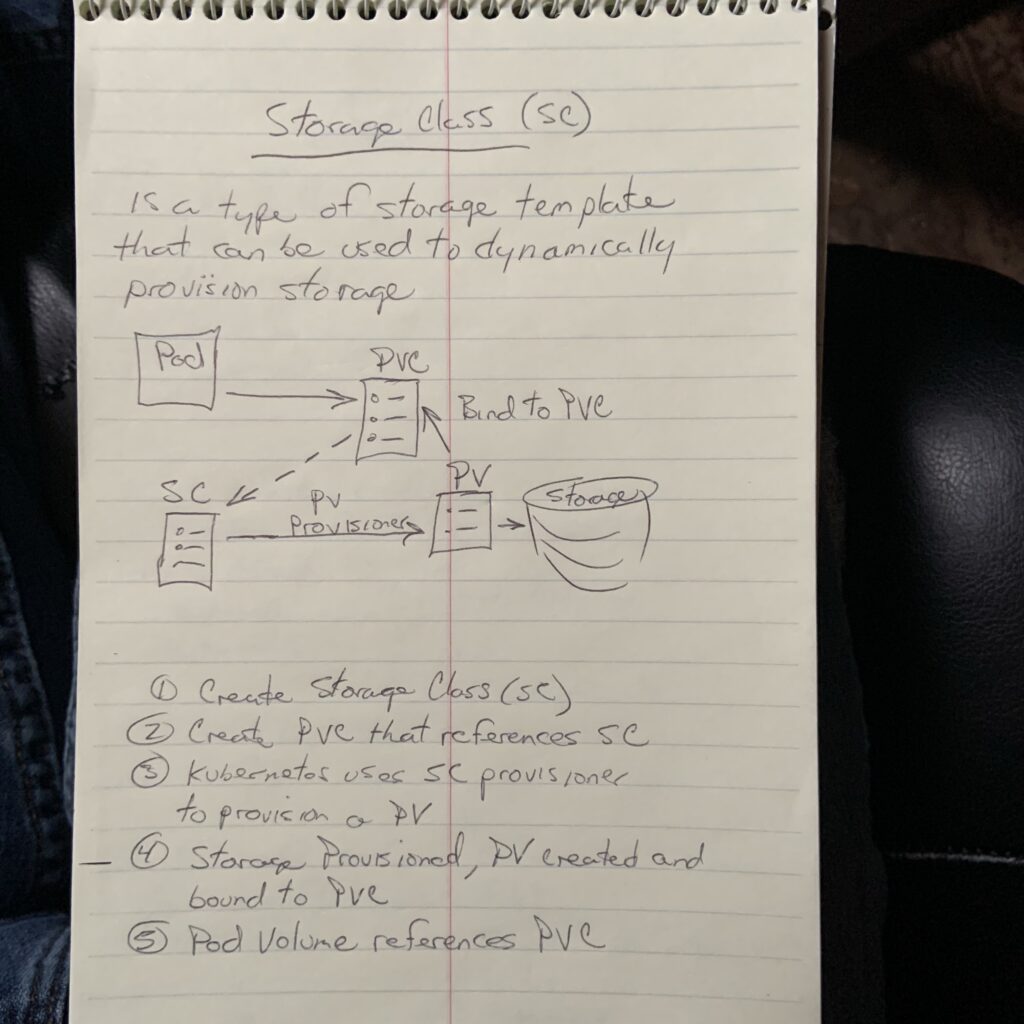 Storage Class (SC)
Is a type of storage template
that can be used to dynamically
provision storage
Pod
PVC
Bind to PVC
SC
PV
Provisioner
PV
Storage
① Create Storage Class (SC)
② Create PVC that references SC
③ Kubernetes uses SC provisioner
to provision a PV
④ Storage Provisioned, PV created and
bound to PVC
⑤ Pod Volume references PVC